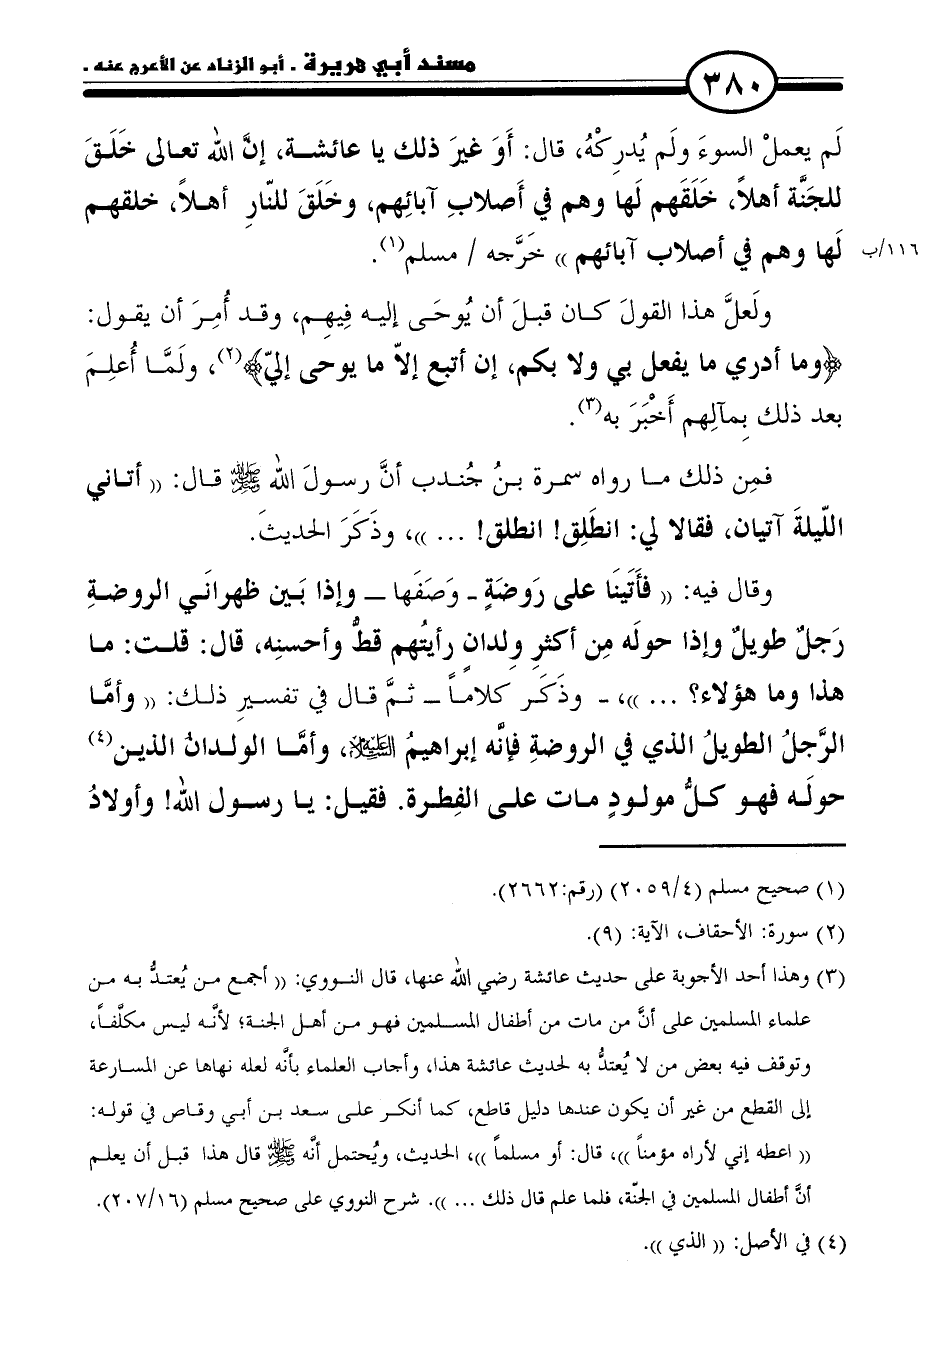 مسند أبي هريرة - أبو الزناد عن الأعرج عنه -
٣٨٠
لَم يعملْ السوءَ ولَم يُدرِكْهُ، قال: أَوَ غيرَ ذلك يا عائشة، إنَّ الله تعالى خَلَقَ
للجنَّة أهلاً، خَلَقَهم لَها وهم في أَصلابِ آبائِهم، وخَلَقَ للنّارِ أهلاً، خلقهم
لَها وهم في أصلاب آبائهم » خَرَّجه / مسلم(١).
١١٦/ب
ولَعلَّ هذا القولَ كان قبلَ أن يُوحَى إليه فِيهِم، وقد أُمِرَ أن يقول:
﴿وما أدري ما يفعل بي ولا بكم، إن أتبع إلاّ ما يوحى إليّ﴾(٢)، ولَمَّا أُعلِمَ
بعد ذلك بِمآلِهم أَخْبَرَ به(٣).
فمِن ذلك ما رواه سمرة بنُ جُندب أنَّ رسولَ الله ﷺ قال: « أتاني
اللّيلةَ آتيان، فقالا لي: انطَلِق! انطلق! ... »، وذَكَرَ الحديثَ.
وقال فيه: « فأَتَينَا على رَوضَةٍ - وَصَفَها - وإذا بَين ظهرانَي الروضةِ
رَجلٌ طويلٌ وإذا حولَه مِن أكثرِ وِلدانٍ رأيتُهم قطُّ وأحسنِه، قال: قلت: ما
هذا وما هؤلاء؟ ... »، - وذَكَر كلاماً - ثمَّ قال في تفسيرِ ذلك: « وأمَّا
الرَّجلُ الطويلُ الذي في الروضةِ فإنَّه إبراهيمُ عليه السلام، وأمَّا الولدانُ الذين(٤)
حولَه فهو كلُّ مولودٍ مات على الفِطرة. فقيل: يا رسول الله! وأولادُ
(١) صحيح مسلم (٢٠٥٩/٤) (رقم:٢٦٦٢).
(٢) سورة: الأحقاف، الآية: (٩).
(٣) وهذا أحد الأجوبة على حديث عائشة رضي الله عنها، قال النووي: « أجمع من يُعتدُّ به من
علماء المسلمين على أنَّ من مات من أطفال المسلمين فهو من أهل الجنة؛ لأنَّه ليس مكلَّفاً،
وتوقف فيه بعض من لا يُعتدُّ به لحديث عائشة هذا، وأجاب العلماء بأنَّه لعله نهاها عن المسارعة
إلى القطع من غير أن يكون عندها دليل قاطع، كما أنكر على سعد بن أبي وقاص في قوله:
« اعطه إني لأراه مؤمناً »، قال: أو مسلماً »، الحديث، ويُحتمل أنَّه ﷺ قال هذا قبل أن يعلم
أنَّ أطفال المسلمين في الجنّة، فلما علم قال ذلك ... ». شرح النووي على صحيح مسلم (٢٠٧/١٦).
(٤) في الأصل: « الذي ».